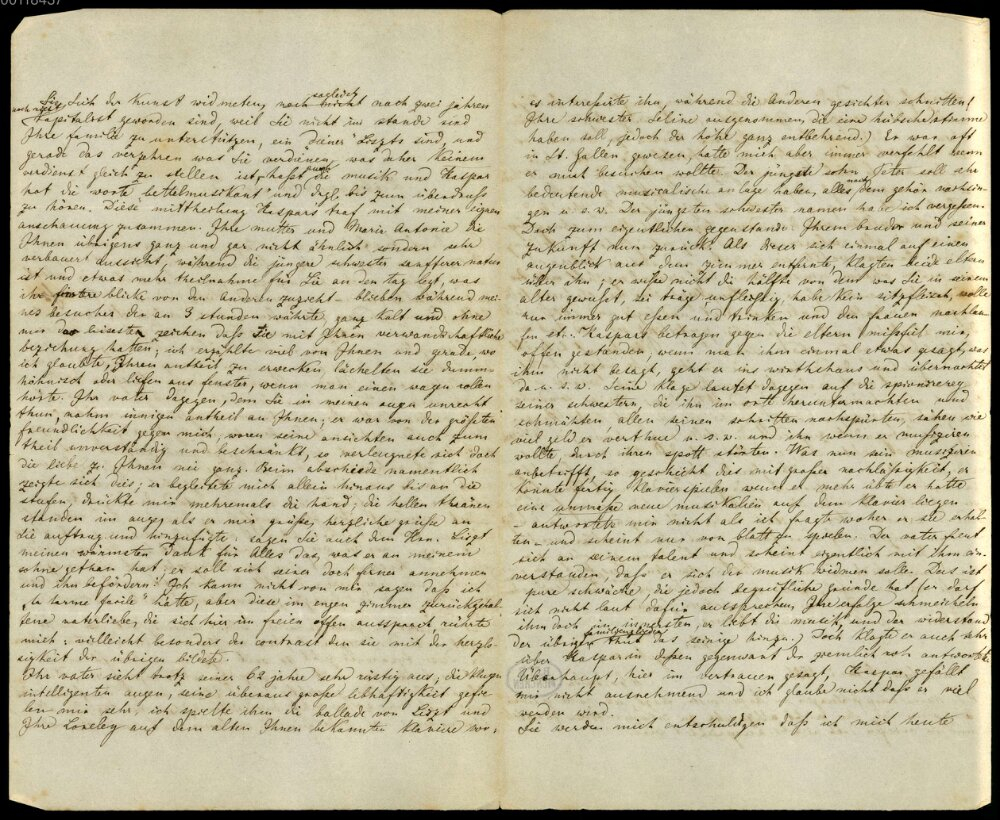 00118457
Sie sich der Kunst widmeten, noch nicht sogleich nach zwei jahren
Kapitalist geworden sind, weil Sie nicht im stande sind
Ihre familie zu unterstützen, ein Diener Liszts sind, und
gerade das verzehren was Sie verdienen, was aber keinem
verdienst gleich zu stellen ist, haßt die musik und Kaspar
hat die worte bettelmusikant und dgl. bis zum überdruß
zu hören. Diese mittheilung Kaspars traf mit meiner eignen
anschauung zusammen. Ihre mutter und Marie Antonie die
Ihnen übrigens ganz und gar nicht ähnlich sondern sehr
verbauert aussieht, während die jüngere schwester sanfterer natur
ist und etwas mehr theilnahme für Sie an den tag legt, was
ihr finstere blicke von den anderen zuzieht – blieben während mei-
nes besuches der an 3 stunden währte ganz kalt und ohne
mir das leiseste zeichen daß Sie mit Ihnen verwandschaftliche
beziehung hatten; ich erzählte viel von Ihnen und gerade, wo
ich glaubte, Ihren antheil zu erwecken, lächelten sie dumm-
höhnisch oder liefen ans fenster, wenn man einen wagen rollen
hörte. Ihr vater dagegen, dem Sie in meinen augen unrecht
thun, nahm innigen antheil an Ihnen; er war von der größten
freundlichkeit gegen mich, waren seine ansichten auch zum
theil unverständig und beschränkt, so verleugnete sich doch
die liebe zu Ihnen nie ganz. Beim abschiede namentlich
zeigte sich dies; er begleitete mich allein hinaus bis an die
stufen, drückte mir mehremals die hand; die hellen thränen
standen im auge, als er mir grüße, herzliche grüße an
Sie auftrug und hinzufügte: sagen Sie auch dem Hrn. Liszt
meinen wärmsten Dank für Alles das, was er an meinem
sohne gethan hat; er soll sich seiner doch ferner annehmen
und ihn befördern! Ich kann nicht von mir sagen daß ich
„la larme facile" hätte, aber diese im engen zimmer zurückgehal-
tene vaterliebe, die sich hier im freien offen aussprach rührte
mich; vielleicht besonders der contrast den sie mit der herzlo-
sigkeit der übrigen bildete.
Ihr vater sieht trotz seiner 62 jahre sehr rüstig aus; die klugen
intelligenten augen, seine überaus große lebhaftigkeit gefie-
len mir sehr; ich spielte ihm die ballade von Liszt und
Ihre Loreley auf dem alten Ihnen bekannten klaviere vor;
es interessirte ihn, während die anderen gesichter schnitten!
(Ihre schwester Seline ausgenommen, die eine hübsche stimme
haben soll, jedoch der höhe ganz entbehrend.) Er war oft
in St. Gallen gewesen, hatte mich aber immer verfehlt wenn
er mich besuchen wollte. Der jüngste sohn Peter soll sehr
bedeutende musicalische anlage haben, alles nach dem gehör nachsin-
gen u. s. w. Der jüngsten schwester namen habe ich vergessen.
Doch zum eigentlichen gegenstande Ihrem bruder und seiner
zukunft nun zurück. Als dieser sich einmal auf einen
augenblick aus dem zimmer entfernte, klagten beide eltern
über ihn; er wisse nicht die hälfte von dem was Sie in seinem
alter gewußt, sei träge unfleißig, habe kein sitzfleisch, wolle
nur immer gut essen und trinken und den frauen nachlau-
fen etc. Kaspars betragen gegen die eltern missfiel mir,
offen gestanden; wenn man ihm einmal etwas gesagt, was
ihm nicht behagt, geht er ins wirthshaus und übernachtet
da u. s. w. Seine klage lautet dagegen auf die spionirerey
seiner schwestern, die ihn im orte heruntermachten und
schmähten, allen seinen schritten nachspürten, sähen wie
viel geld er verthue u. s. w. und ihn wenn er musiziren
wollte, durch ihren spott störten. Was nun sein musiziren
anbetrifft, so geschieht dies mit großer nachlässigkeit; er
könnte fertig klavierspielen wenn er mehr übte er hatte
eine unmasse neue musikalien auf dem klavier liegen
– antwortete mir nicht als ich fragte woher er sie erhal-
ten – und scheint nur vom blatt zu spielen. Der vater freut
sich an seinem talent und scheint eigentlich mit ihm ein-
verstanden, daß er sich der musik widmen solle. Das ist
pure schwäche, die jedoch begreifliche gründe hat (er darf
sich nicht laut dafür aussprechen, Ihre erfolge schmeicheln
ihm doch im innersten, er liebt die musik und der widerstand
der übrigen familienglieder thut das seinige hinzu.) Doch klagte er auch sehr
über Kaspar in dessen gegenwart der ziemlich roh antwortete.
Überhaupt, hier im vertrauen gesagt, Kaspar gefällt
mir nicht ausnehmend und ich glaube nicht daß er viel
werden wird.
Sie werden mich entschuldigen daß ich mich heute